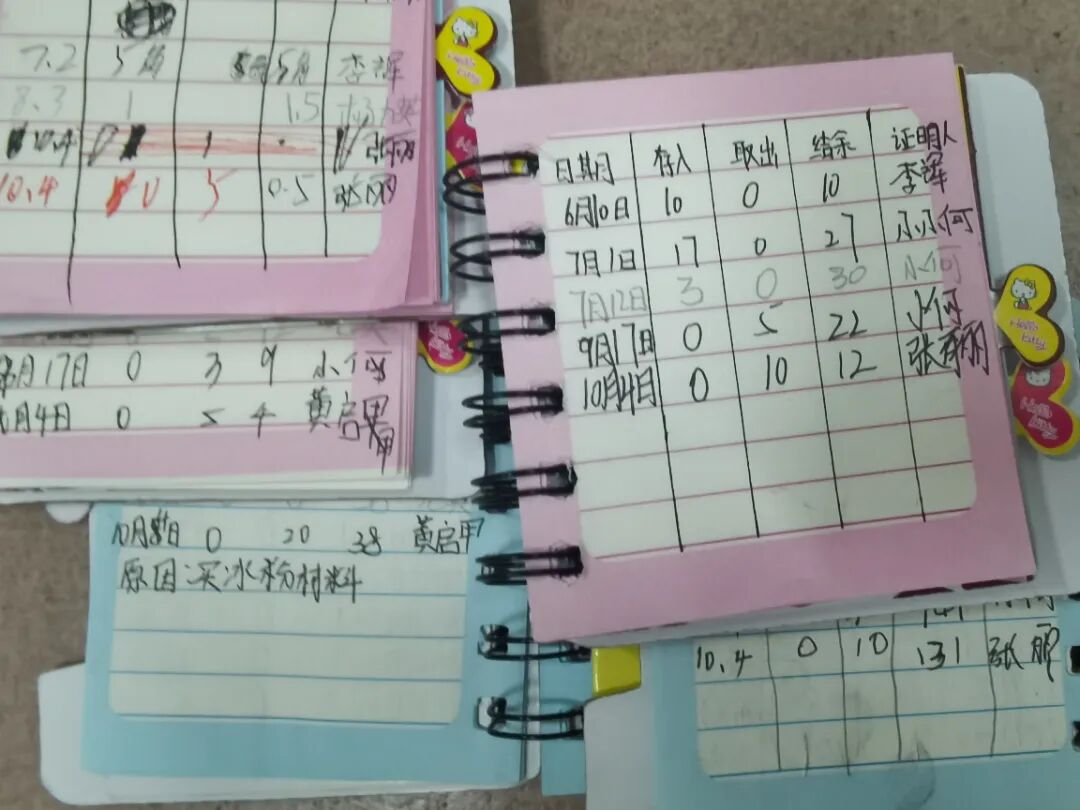 7.2 5角 5角 李辉
8.3 1 1.5
10.4 1
10.4 0 5 0.5 张丽
月17日 0 3 9 小何
月4日 0 5 4 黄启甲
10月4日 0 20 38 黄启甲
原因:买冰粉材料
日期 存入 取出 结余 证明人
6月10日 10 0 10 李辉
7月1日 17 0 27 小何
7月12日 3 0 30 小何
9月17日 0 5 22 小何
10月4日 0 10 12 张丽
10.4 0 10 131 张丽
Hello Kitty
Hello Kitty
Hello Kitty